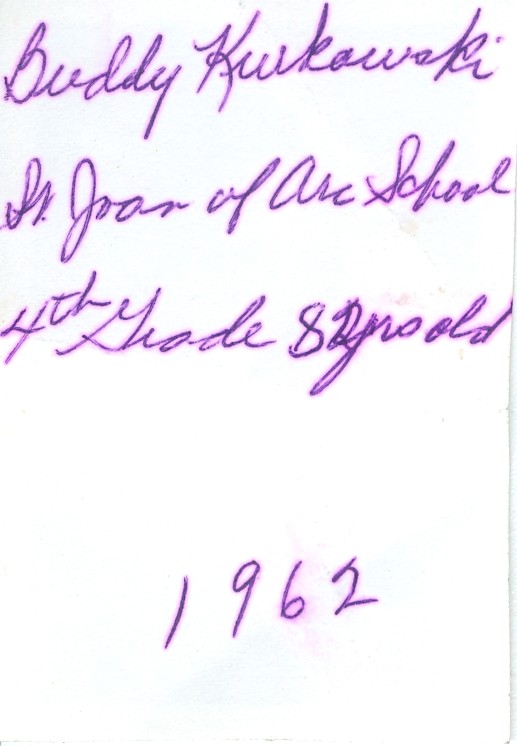 Buddy Kurkowski
St. Joan of Arc School
4th Grade 8 yrs old
1962